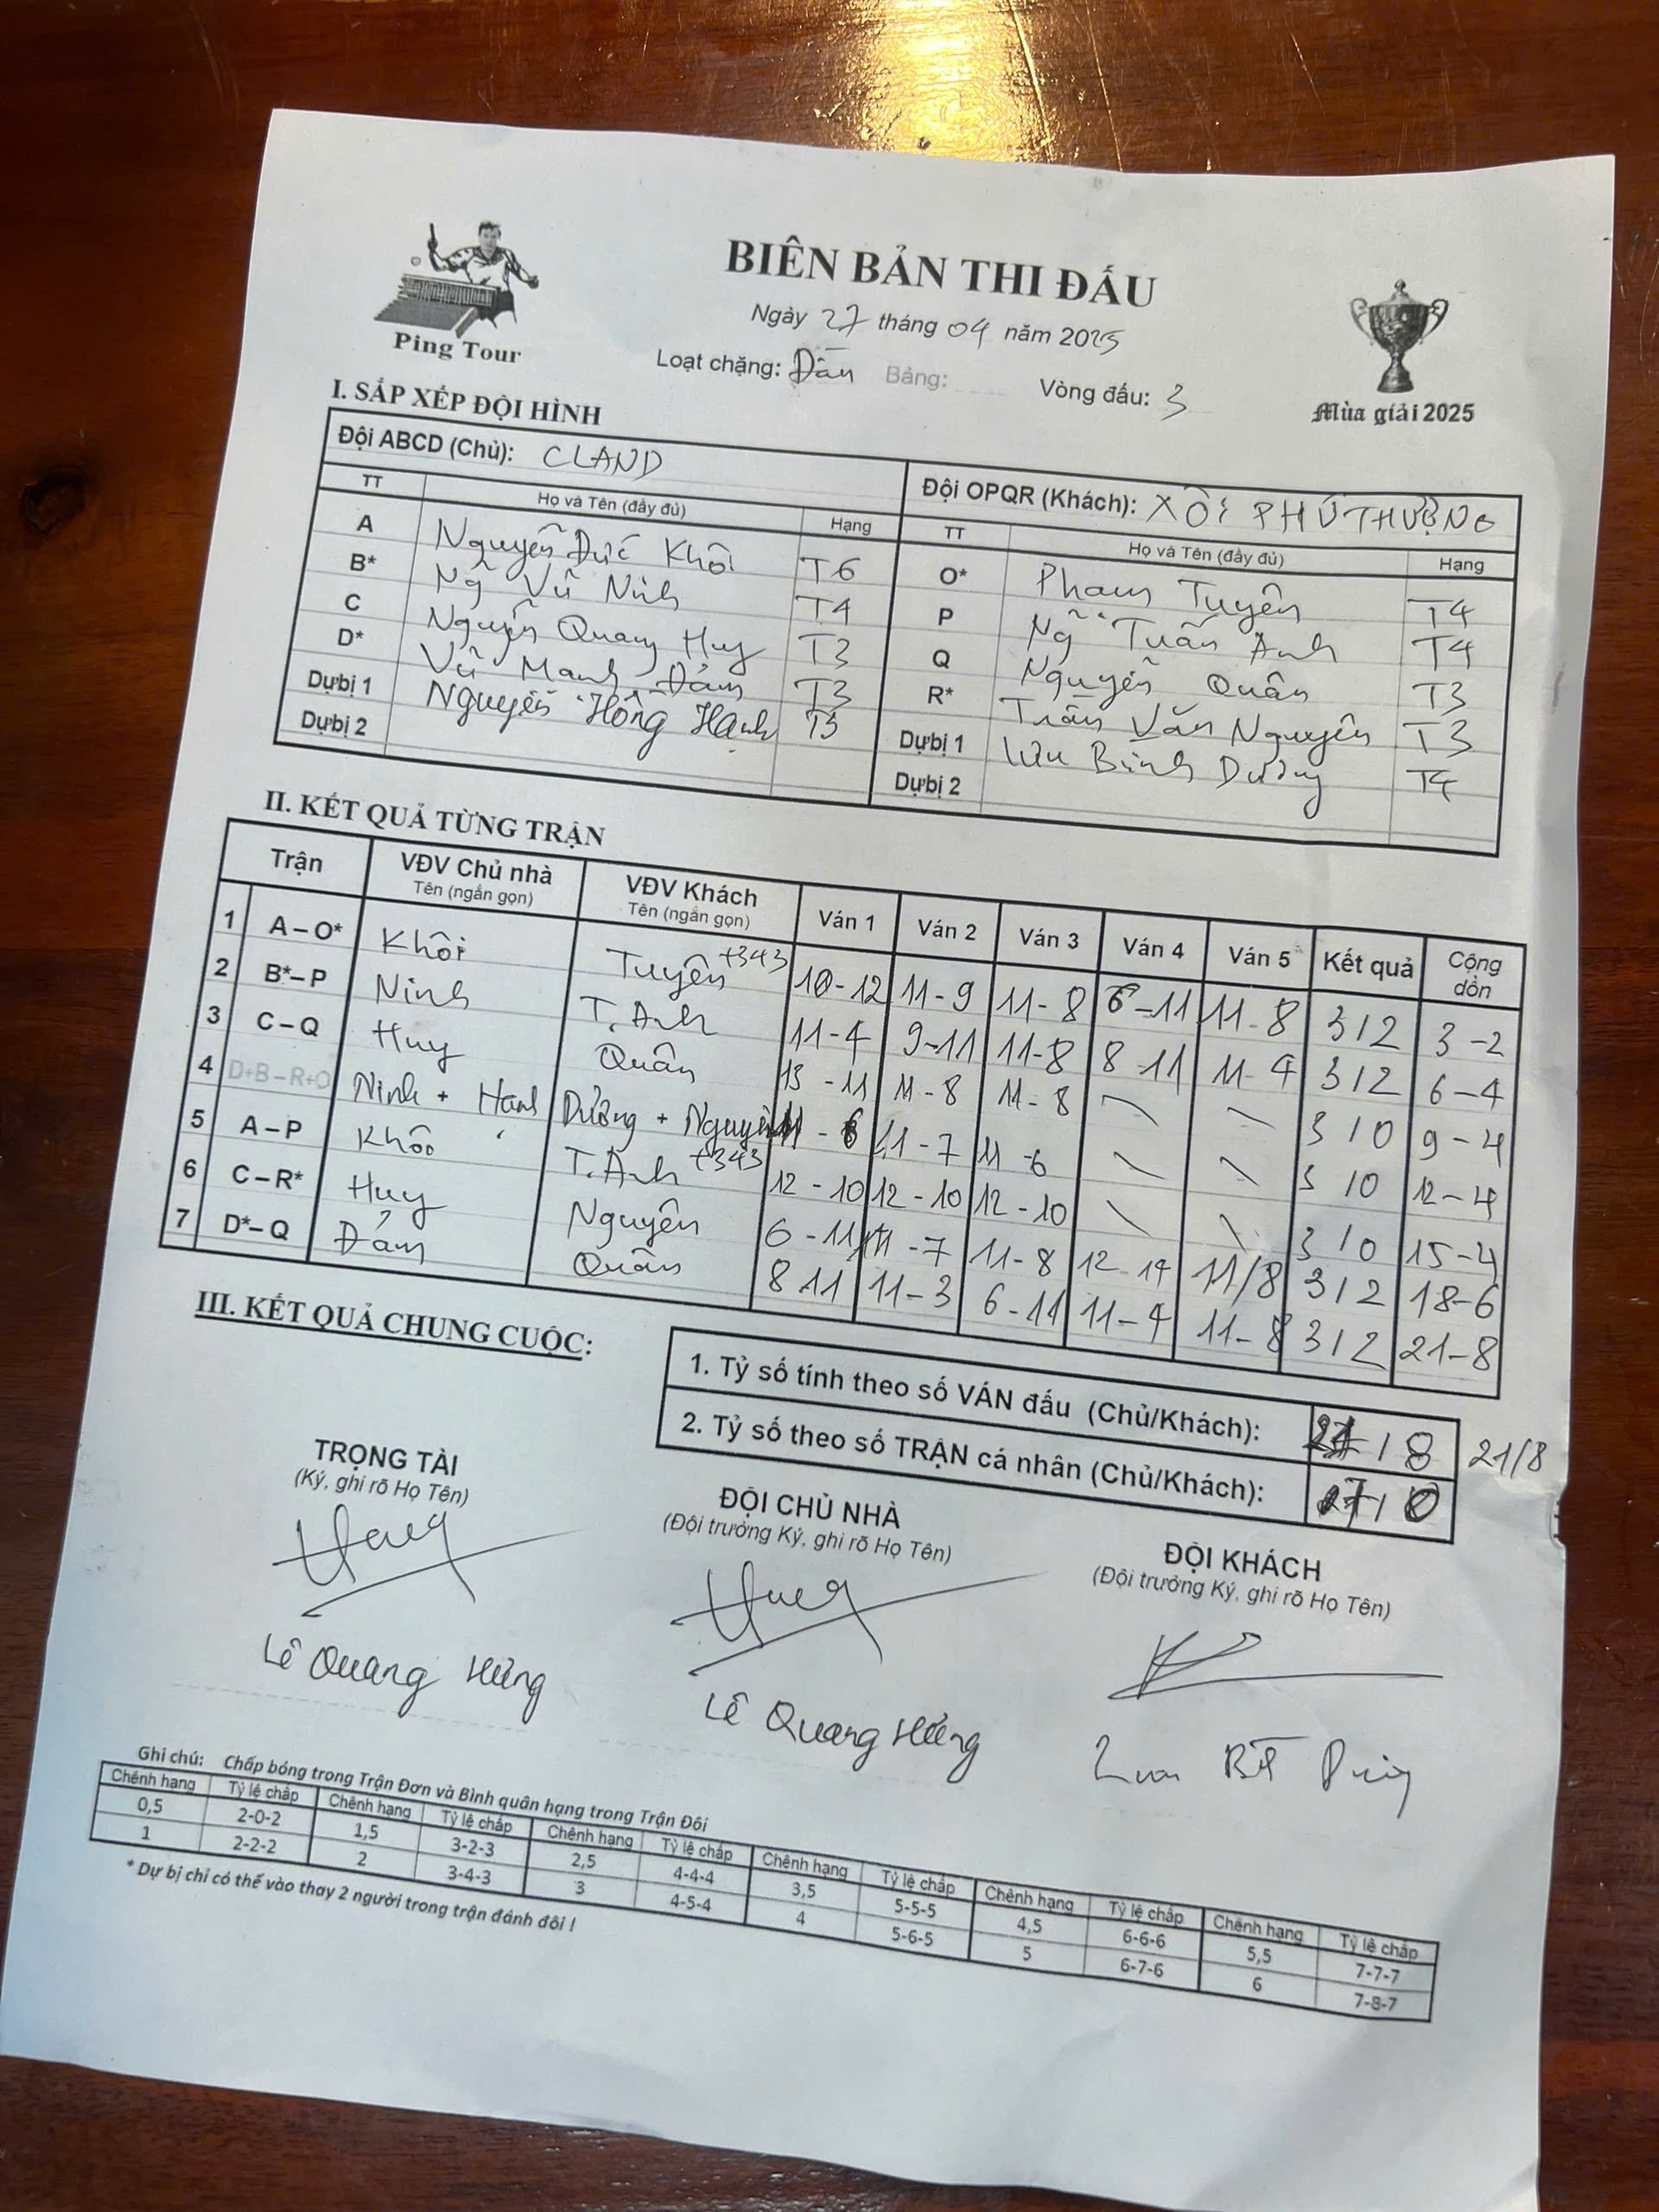 BIÊN BẢN THI ĐẤU
Ping Tour
Ngày 27 tháng 04 năm 2025
Loạt chặng: Dần Bảng: Vòng đấu: 3
Mùa giải 2025
I. SẮP XẾP ĐỘI HÌNH
Đội ABCD (Chủ): CLAND Đội OPQR (Khách): XÔI PHÚ THƯỢNG
TT Họ và Tên (đầy đủ) Hạng TT Họ và Tên (đầy đủ) Hạng
A Nguyễn Đức Khôi T6 O* Phạm Tuyên T4
B* Ng Vũ Ninh T4 P Ng Tuấn Anh T4
C Nguyễn Quang Huy T3 Q Nguyễn Quân T3
D* Vũ Mạnh Đảm T3 R* Trần Văn Nguyên T3
Dự bị 1 Nguyễn Hồng Hạnh T5 Dự bị 1 Lưu Bình Dương T4
Dự bị 2 Dự bị 2
II. KẾT QUẢ TỪNG TRẬN
Trận VĐV Chủ nhà Tên (ngắn gọn) VĐV Khách Tên (ngắn gọn) Ván 1 Ván 2 Ván 3 Ván 4 Ván 5 Kết quả Cộng dồn
1 A – O* Khôi Tuyên +343 10-12 11-9 11-8 6-11 11-8 3/2 3-2
2 B* – P Ninh T. Anh 11-4 9-11 11-8 8-11 11-4 3/2 6-4
3 C – Q Huy Quân 13-11 11-8 11-8 \ \ 3/0 9-4
4 D+B – R+O Ninh + Hạnh Dương + Nguyên 11-6 11-7 11-6 \ \ 3/0 12-4
5 A – P Khôi T. Anh +343 12-10 12-10 12-10 \ \ 3/0 15-4
6 C – R* Huy Nguyên 6-11 11-7 11-8 12-14 11/8 3/2 18-6
7 D* – Q Đảm Quân 8-11 11-3 6-11 11-4 11-8 3/2 21-8
III. KẾT QUẢ CHUNG CUỘC:
1. Tỷ số tính theo số VÁN đấu (Chủ/Khách): 21/8 21/8
2. Tỷ số theo số TRẬN cá nhân (Chủ/Khách): 7/0
TRỌNG TÀI
(Ký, ghi rõ Họ Tên)
Lê Quang Hưng
ĐỘI CHỦ NHÀ
(Đội trưởng Ký, ghi rõ Họ Tên)
Lê Quang Hưng
ĐỘI KHÁCH
(Đội trưởng Ký, ghi rõ Họ Tên)
Ghi chú: Chấp bóng trong Trận Đơn và Bình quân hạng trong Trận Đôi
Chênh hạng Tỷ lệ chấp Chênh hạng Tỷ lệ chấp Chênh hạng Tỷ lệ chấp Chênh hạng Tỷ lệ chấp Chênh hạng Tỷ lệ chấp Chênh hạng Tỷ lệ chấp
0,5 2-0-2 1,5 3-2-3 2,5 4-4-4 3,5 5-5-5 4,5 6-6-6 5,5 7-7-7
1 2-2-2 2 3-4-3 3 4-5-4 4 5-6-5 5 6-7-6 6 7-8-7
* Dự bị chỉ có thể vào thay 2 người trong trận đánh đôi !